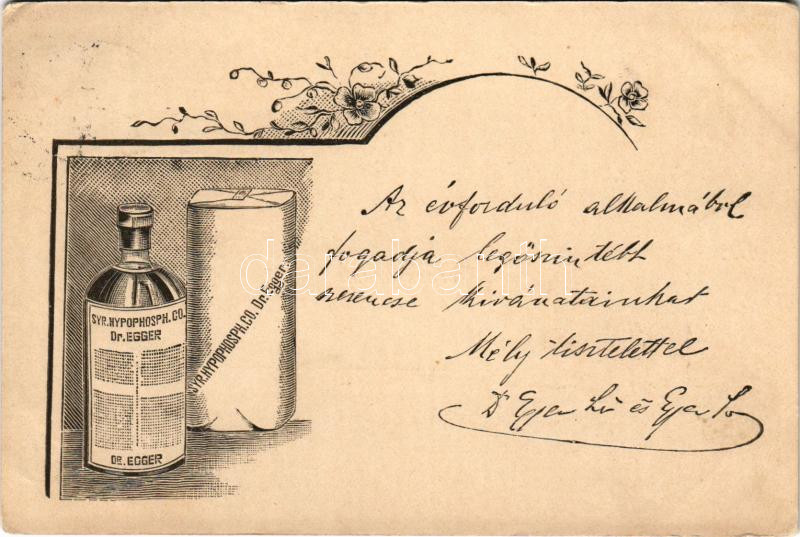 SYR.HYPOPHOSPH.CO.
Dr. EGGER
DR. EGGER
SYR.HYPOPHOSPH.CO. Dr. Egger
Az évforduló alkalmából
fogadja legőszintébb
szerencse kivánatainkat
Mély tisztelettel
Dr Egger és Egger
darabanth